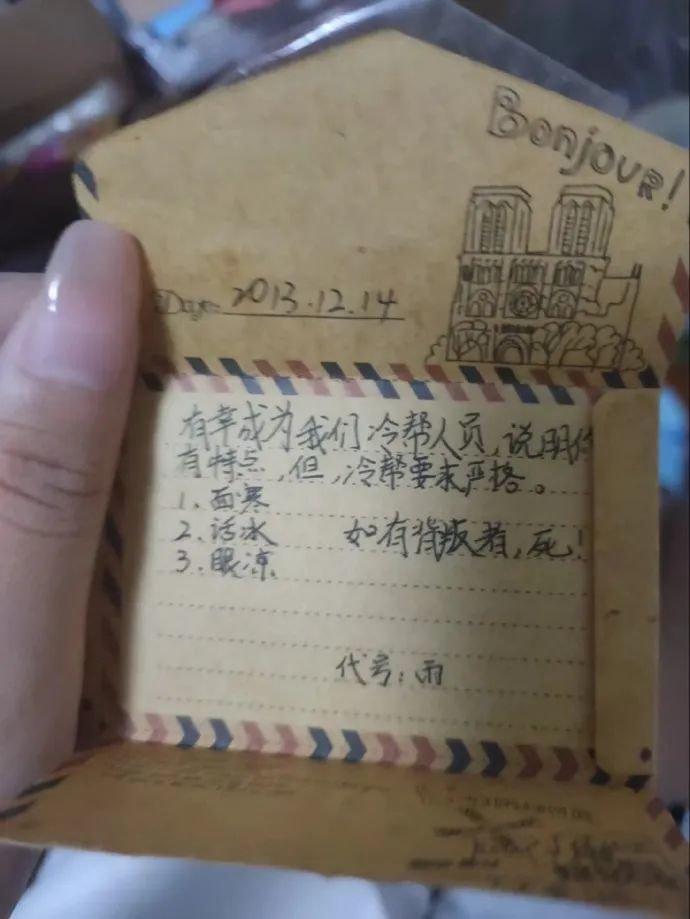 Bonjour!
Date: 2013.12.14
有幸成为我们冷帮人员,说明你
有特点,但,冷帮要求严格。
1、面寒
2、话冰 如有背叛者,死!
3、眼凉
代号:雨